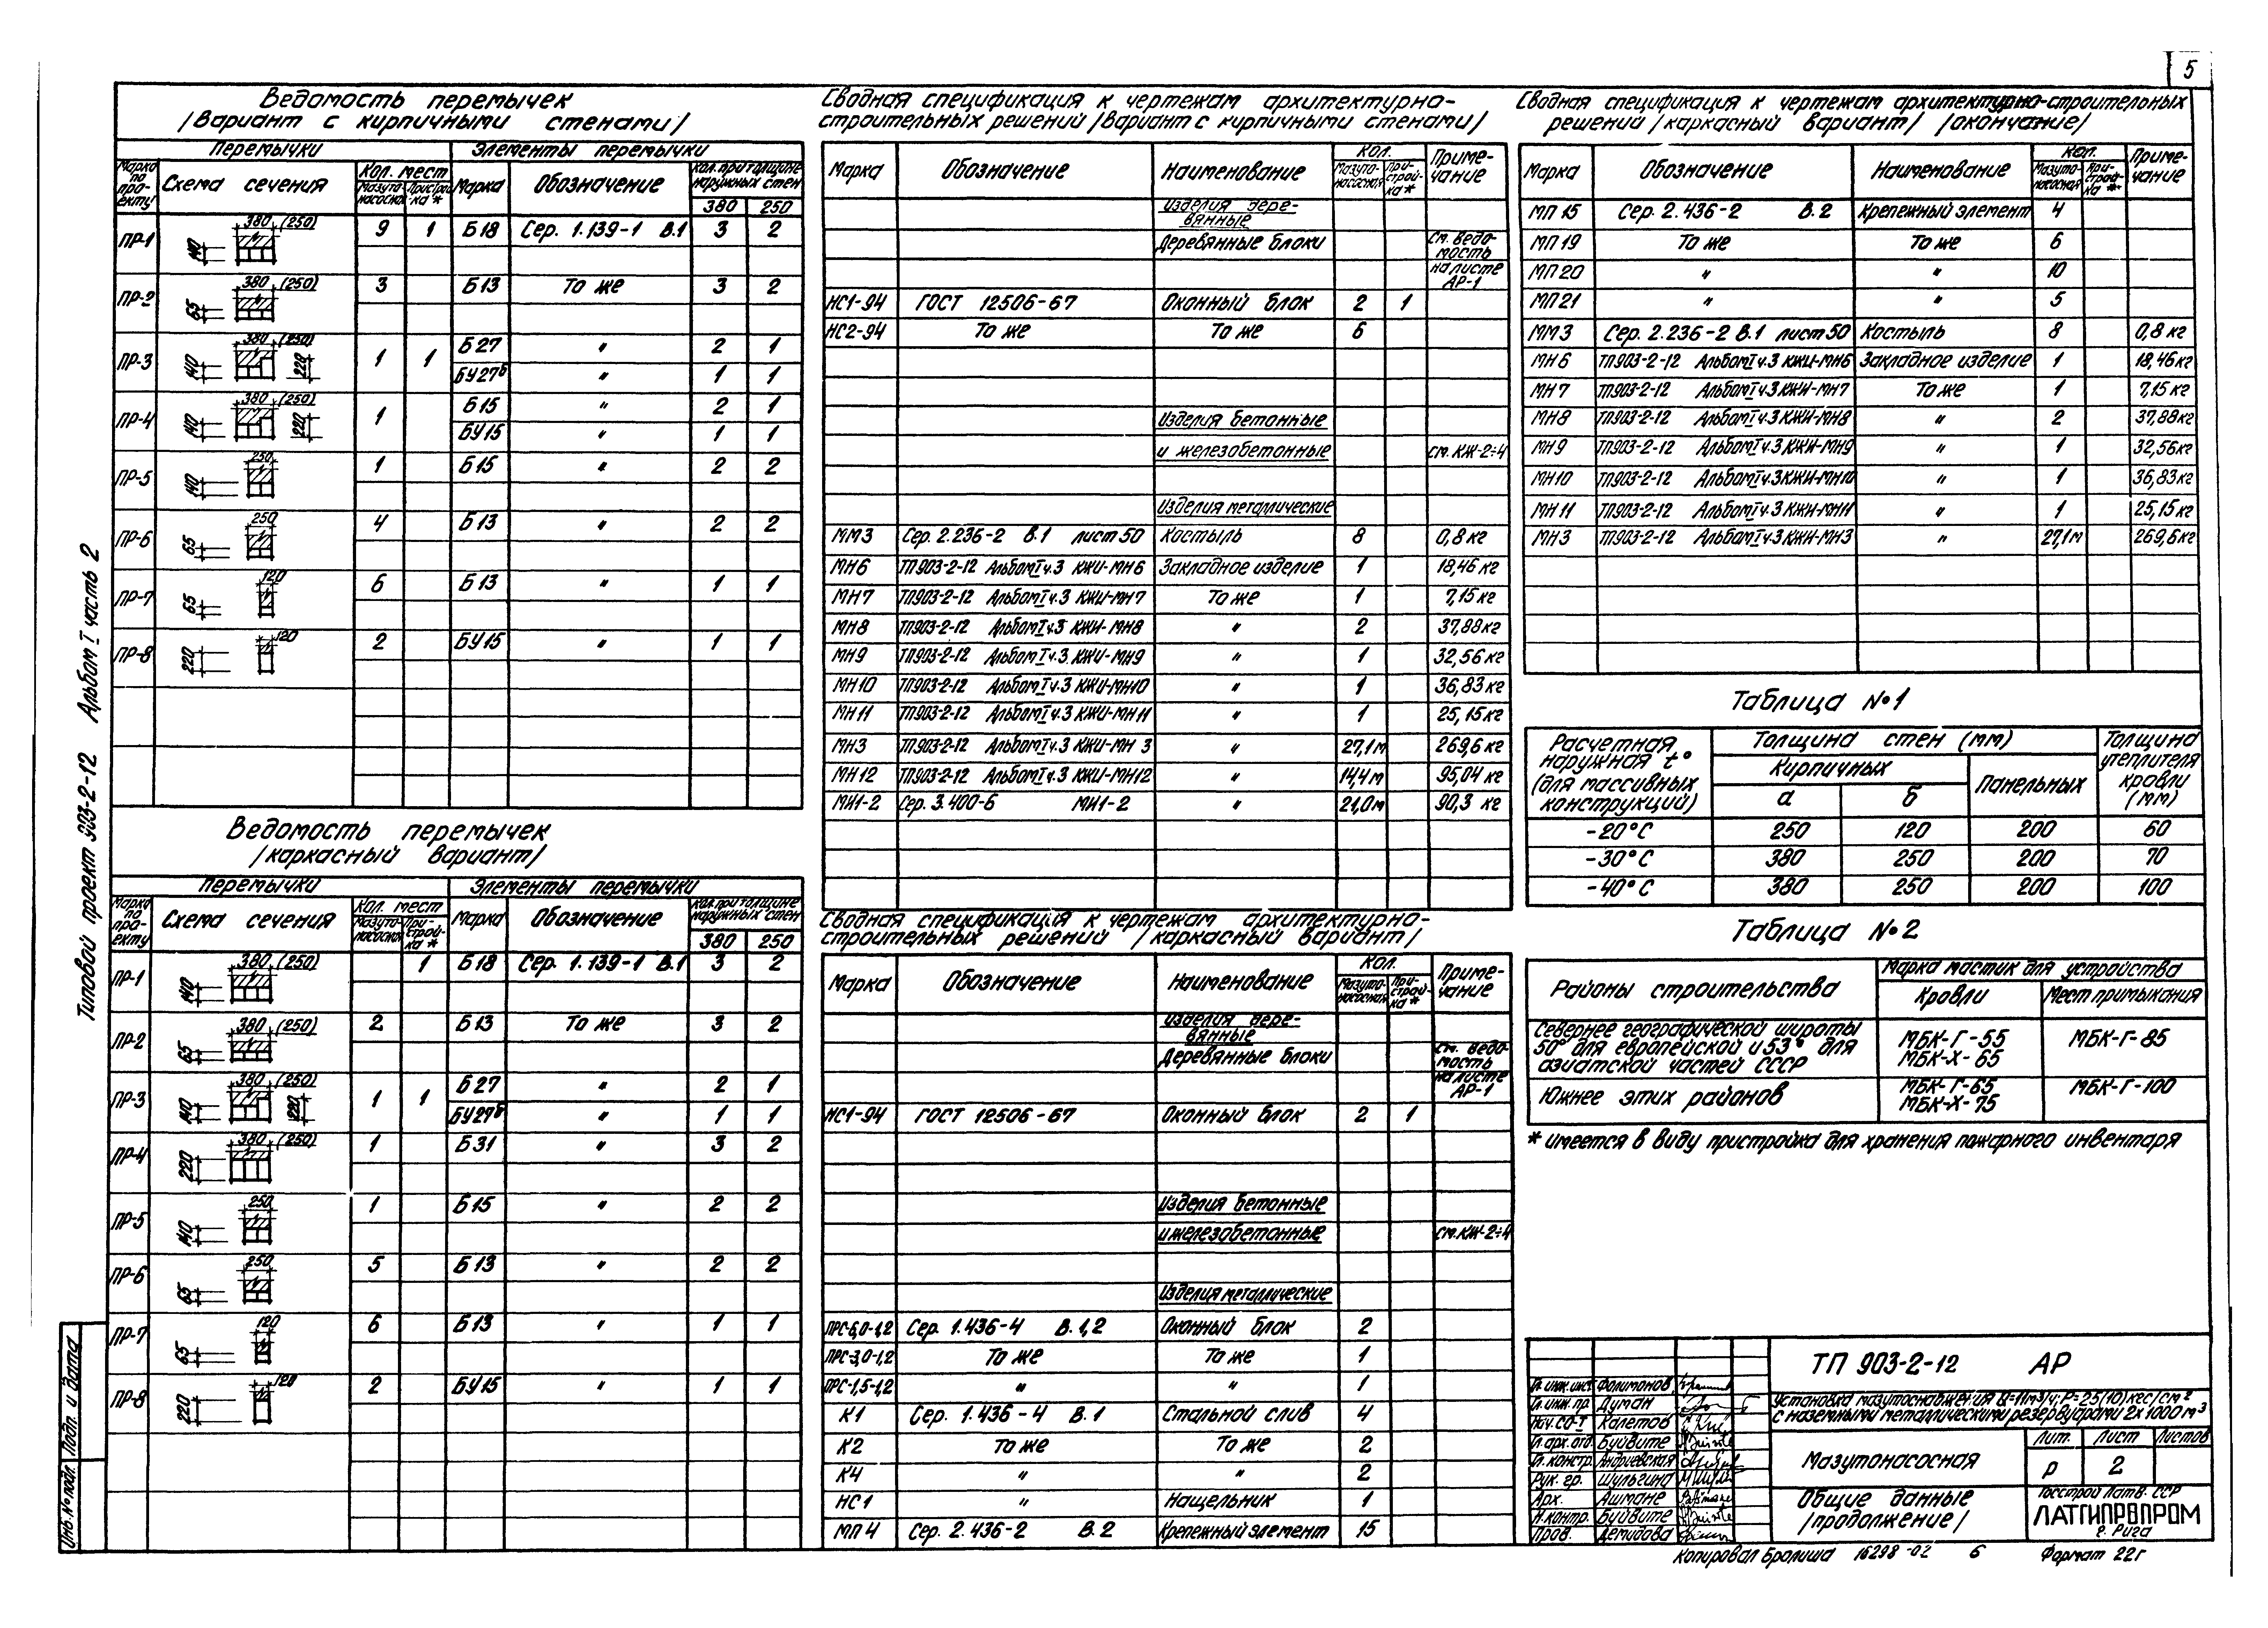 5
Типовой проект 903-2-12 Альбом I часть 2
Инв. № подл. Подп. и дата
Ведомость перемычек
/вариант с кирпичными стенами/
Перемычки Элементы перемычки
Марка по проекту Схема сечения Кол. мест Марка Обозначение Кол. при толщине наружных стен
Мазутонасосная Пристройка * 380 250
ПР-1 380 (250) 140 9 1 Б18 Сер. 1.139-1 В.1 3 2
ПР-2 380 (250) 65 3 Б13 То же 3 2
ПР-3 380 (250) 140 220 1 1 Б27 " 2 1
БУ27б " 1 1
ПР-4 380 (250) 140 220 1 Б15 " 2 1
БУ15 " 1 1
ПР-5 250 140 1 Б15 " 2 2
ПР-6 250 65 4 Б13 " 2 2
ПР-7 120 65 6 Б13 " 1 1
ПР-8 120 220 2 БУ15 " 1 1
Ведомость перемычек
/каркасный вариант/
Перемычки Элементы перемычки
Марка по проекту Схема сечения Кол. мест Марка Обозначение Кол. при толщине наружных стен
Мазутонасосная Пристройка * 380 250
ПР-1 380 (250) 140 1 Б18 Сер. 1.139-1 В.1 3 2
ПР-2 380 (250) 65 2 Б13 То же 3 2
ПР-3 380 (250) 140 220 1 1 Б27 " 2 1
БУ27б " 1 1
ПР-4 380 (250) 220 1 Б31 " 3 2
ПР-5 250 140 1 Б15 " 2 2
ПР-6 250 65 5 Б13 " 2 2
ПР-7 120 65 6 Б13 " 1 1
ПР-8 120 220 2 БУ15 " 1 1
Сводная спецификация к чертежам архитектурно-
строительных решений /вариант с кирпичными стенами/
Марка Обозначение Наименование Кол. Примечание
Мазутонасосная Пристройка *
Изделия дере-
вянные
Деревянные блоки см. ведо-
мость
на листе
АР-1
НС1-94 ГОСТ 12506-67 Оконный блок 2 1
НС2-94 То же То же 6
Изделия бетонные
и железобетонные см. КЖ-2÷4
Изделия металлические
ММ3 Сер. 2.236-2 В.1 лист 50 Костыль 8 0,8 кг
МН6 ТП903-2-12 Альбом I ч.3 КЖИ-МН6 Закладное изделие 1 18,46 кг
МН7 ТП903-2-12 Альбом I ч.3 КЖИ-МН7 То же 1 7,15 кг
МН8 ТП903-2-12 Альбом I ч.3 КЖИ-МН8 " 2 37,88 кг
МН9 ТП903-2-12 Альбом I ч.3 КЖИ-МН9 " 1 32,56 кг
МН10 ТП903-2-12 Альбом I ч.3 КЖИ-МН10 " 1 36,83 кг
МН11 ТП903-2-12 Альбом I ч.3 КЖИ-МН11 " 1 25,15 кг
МН3 ТП903-2-12 Альбом I ч.3 КЖИ-МН 3 " 27,1 м 269,6 кг
МН12 ТП903-2-12 Альбом I ч.3 КЖИ-МН12 " 14,4 м 95,04 кг
МИ1-2 Сер. 3.400-6 МИ1-2 " 21,0 м 90,3 кг
Сводная спецификация к чертежам архитектурно-
строительных решений /каркасный вариант/
Марка Обозначение Наименование Кол. Примечание
Мазутонасосная Пристройка *
Изделия дере-
вянные
Деревянные блоки см. ведо-
мость
на листе
АР-1
НС1-94 ГОСТ 12506-67 Оконный блок 2 1
Изделия бетонные
и железобетонные см. КЖ-2÷4
Изделия металлические
ПРС-6,0-1,2 Сер. 1.436-4 В.1,2 Оконный блок 2
ПРС-3,0-1,2 То же То же 1
ПРС-1,5-1,2 " " 1
К1 Сер. 1.436-4 В.1 Стальной слив 4
К2 То же То же 2
К4 " " 2
НС1 " Нащельник 1
МП4 Сер. 2.436-2 В.2 Крепежный элемент 15
Сводная спецификация к чертежам архитектурно-строительных
решений /каркасный вариант/ /окончание/
Марка Обозначение Наименование Кол. Примечание
Мазутонасосная Пристройка *
МП15 Сер. 2.436-2 В.2 Крепежный элемент 4
МП19 То же То же 6
МП20 " " 10
МП21 " " 5
ММ3 Сер. 2.236-2 В.1 лист 50 Костыль 8 0,8 кг
МН6 ТП903-2-12 Альбом I ч.3 КЖИ-МН6 Закладное изделие 1 18,46 кг
МН7 ТП903-2-12 Альбом I ч.3 КЖИ-МН7 То же 1 7,15 кг
МН8 ТП903-2-12 Альбом I ч.3 КЖИ-МН8 " 2 37,88 кг
МН9 ТП903-2-12 Альбом I ч.3 КЖИ-МН9 " 1 32,56 кг
МН10 ТП903-2-12 Альбом I ч.3 КЖИ-МН10 " 1 36,83 кг
МН11 ТП903-2-12 Альбом I ч.3 КЖИ-МН11 " 1 25,15 кг
МН3 ТП903-2-12 Альбом I ч.3 КЖИ-МН3 " 27,1 м 269,6 кг
Таблица №1
Расчетная наружная t° (для массивных конструкций) Толщина стен (мм) Толщина утеплителя кровли (мм)
Кирпичных Панельных
а б
-20°С 250 120 200 60
-30°С 380 250 200 70
-40°С 380 250 200 100
Таблица №2
Районы строительства Марка мастик для устройства
Кровли Мест примыкания
Севернее географической широты
50° для европейской и 53° для
азиатской частей СССР МБК-Г-55 МБК-Х-65 МБК-Г-85
Южнее этих районов МБК-Г-65 МБК-Х-75 МБК-Г-100
* имеется в виду пристройка для хранения пожарного инвентаря
ТП 903-2-12 АР
Установка мазутоснабжения Q=11м3/ч; Р=25(10)кгс/см2
с наземными металлическими резервуарами 2х1000м3
Гл. инж. инст. Фолимонов
Гл. инж. пр. Думан
Нач. СО-Т Калетов
Гл. арх. отд. Буйвите
Гл. констр. Андриевская
Рук. гр. Шульгина
Арх. Ашмане
Н. контр. Буйвите
Пров. Демидова
Мазутонасосная
Лит. Лист Листов
Р 2
Общие данные
/продолжение/
Госстрой Латв. ССР
ЛАТГИПРОПРОМ
г. Рига
Копировал Бролиша 16298-02 6 Формат 22г